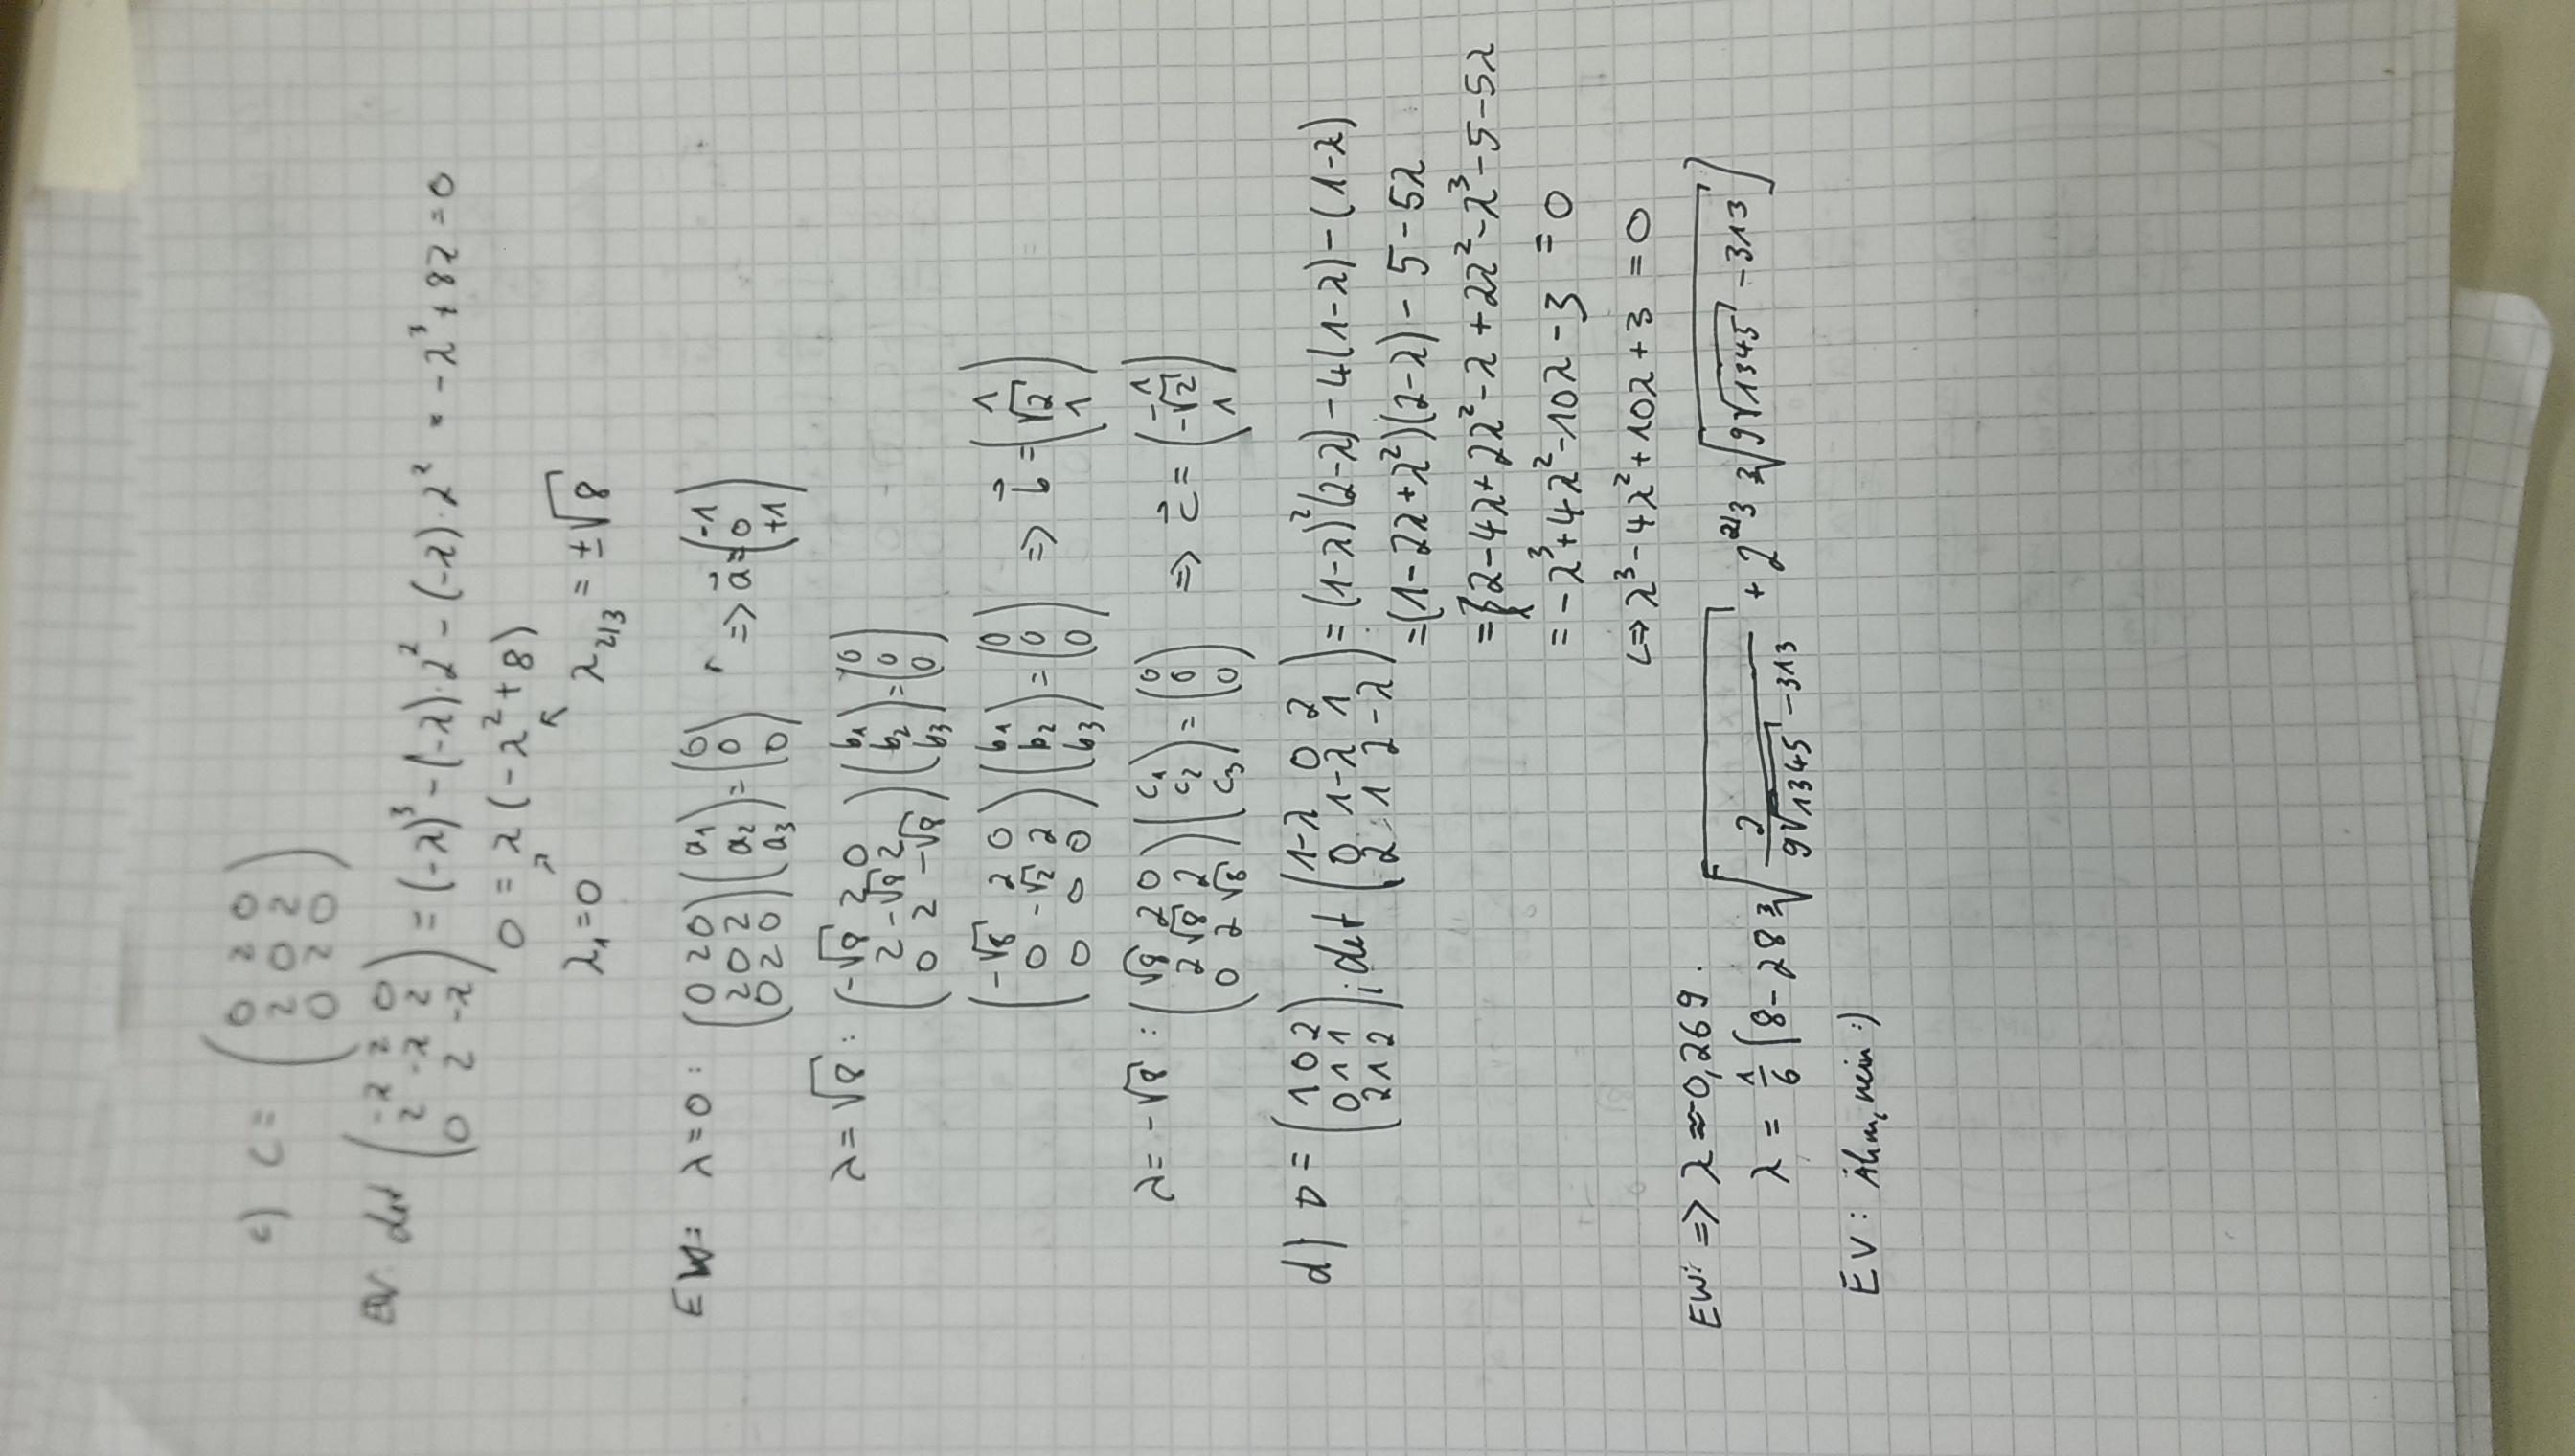 c) C = (0 2 0; 2 0 2; 0 2 0)
EV: det (-λ 2 0; 2 -λ 2; 0 2 -λ) = (-λ)³ - (-λ)·2² - (-λ)·2² = -λ³ + 8λ = 0
0 = λ (-λ² + 8)
λ₁ = 0 λ₂/₃ = ±√8
EW: λ = 0 : (0 2 0; 2 0 2; 0 2 0) (a₁; a₂; a₃) = (0; 0; 0) => a⃗ = (-1; 0; +1)
λ = √8 : (-√8 2 0; 2 -√8 2; 0 2 -√8) (b₁; b₂; b₃) = (0; 0; 0)
(-√8 2 0; 0 -√2 2; 0 0 0) (b₁; b₂; b₃) = (0; 0; 0) => b⃗ = (1; √2; 1)
λ = -√8 : (√8 2 0; 2 √8 2; 0 2 √8) (c₁; c₂; c₃) = (0; 0; 0) => c⃗ = (1; -√2; 1)
d) D = (1 0 2; 0 1 1; 2 1 2); det (1-λ 0 2; 0 1-λ 1; 2 1 2-λ) = (1-λ)²(2-λ) - 4(1-λ) - (1-λ)
= (1 - 2λ + λ²)(2-λ) - 5 - 5λ
= 2 - 4λ + 2λ² - λ + 2λ² - λ³ - 5 - 5λ
= -λ³ + 4λ² - 10λ - 3 = 0
<=> λ³ - 4λ² + 10λ + 3 = 0
EW: => λ ≈ -0,269
λ = 1/6 [8 - 28 ³√(2/(9√1345 - 313)) + 2^(2/3) ³√(9√1345 - 313)]
EV: Ähm, nein :)